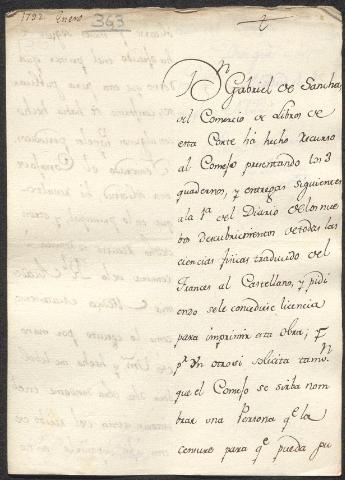 1792 Enero
363
Dn Gabriel de Sancha,
del Comercio de Libros de
esta Corte ha hecho Recurso
al Consejo presentando los 3
quadernos, y entregas siguientes
a la 1a del Diario de los nue
bos descubrimientos de todas las
ciencias fisicas traducido del
Frances al Castellano, y pidi
endo se le concediese licencia
para imprimir esta obra; y
pr Un otrosi solicita tambn
que el Consejo se sirba nom
brar una Persona qe la
censure para qe pueda pu